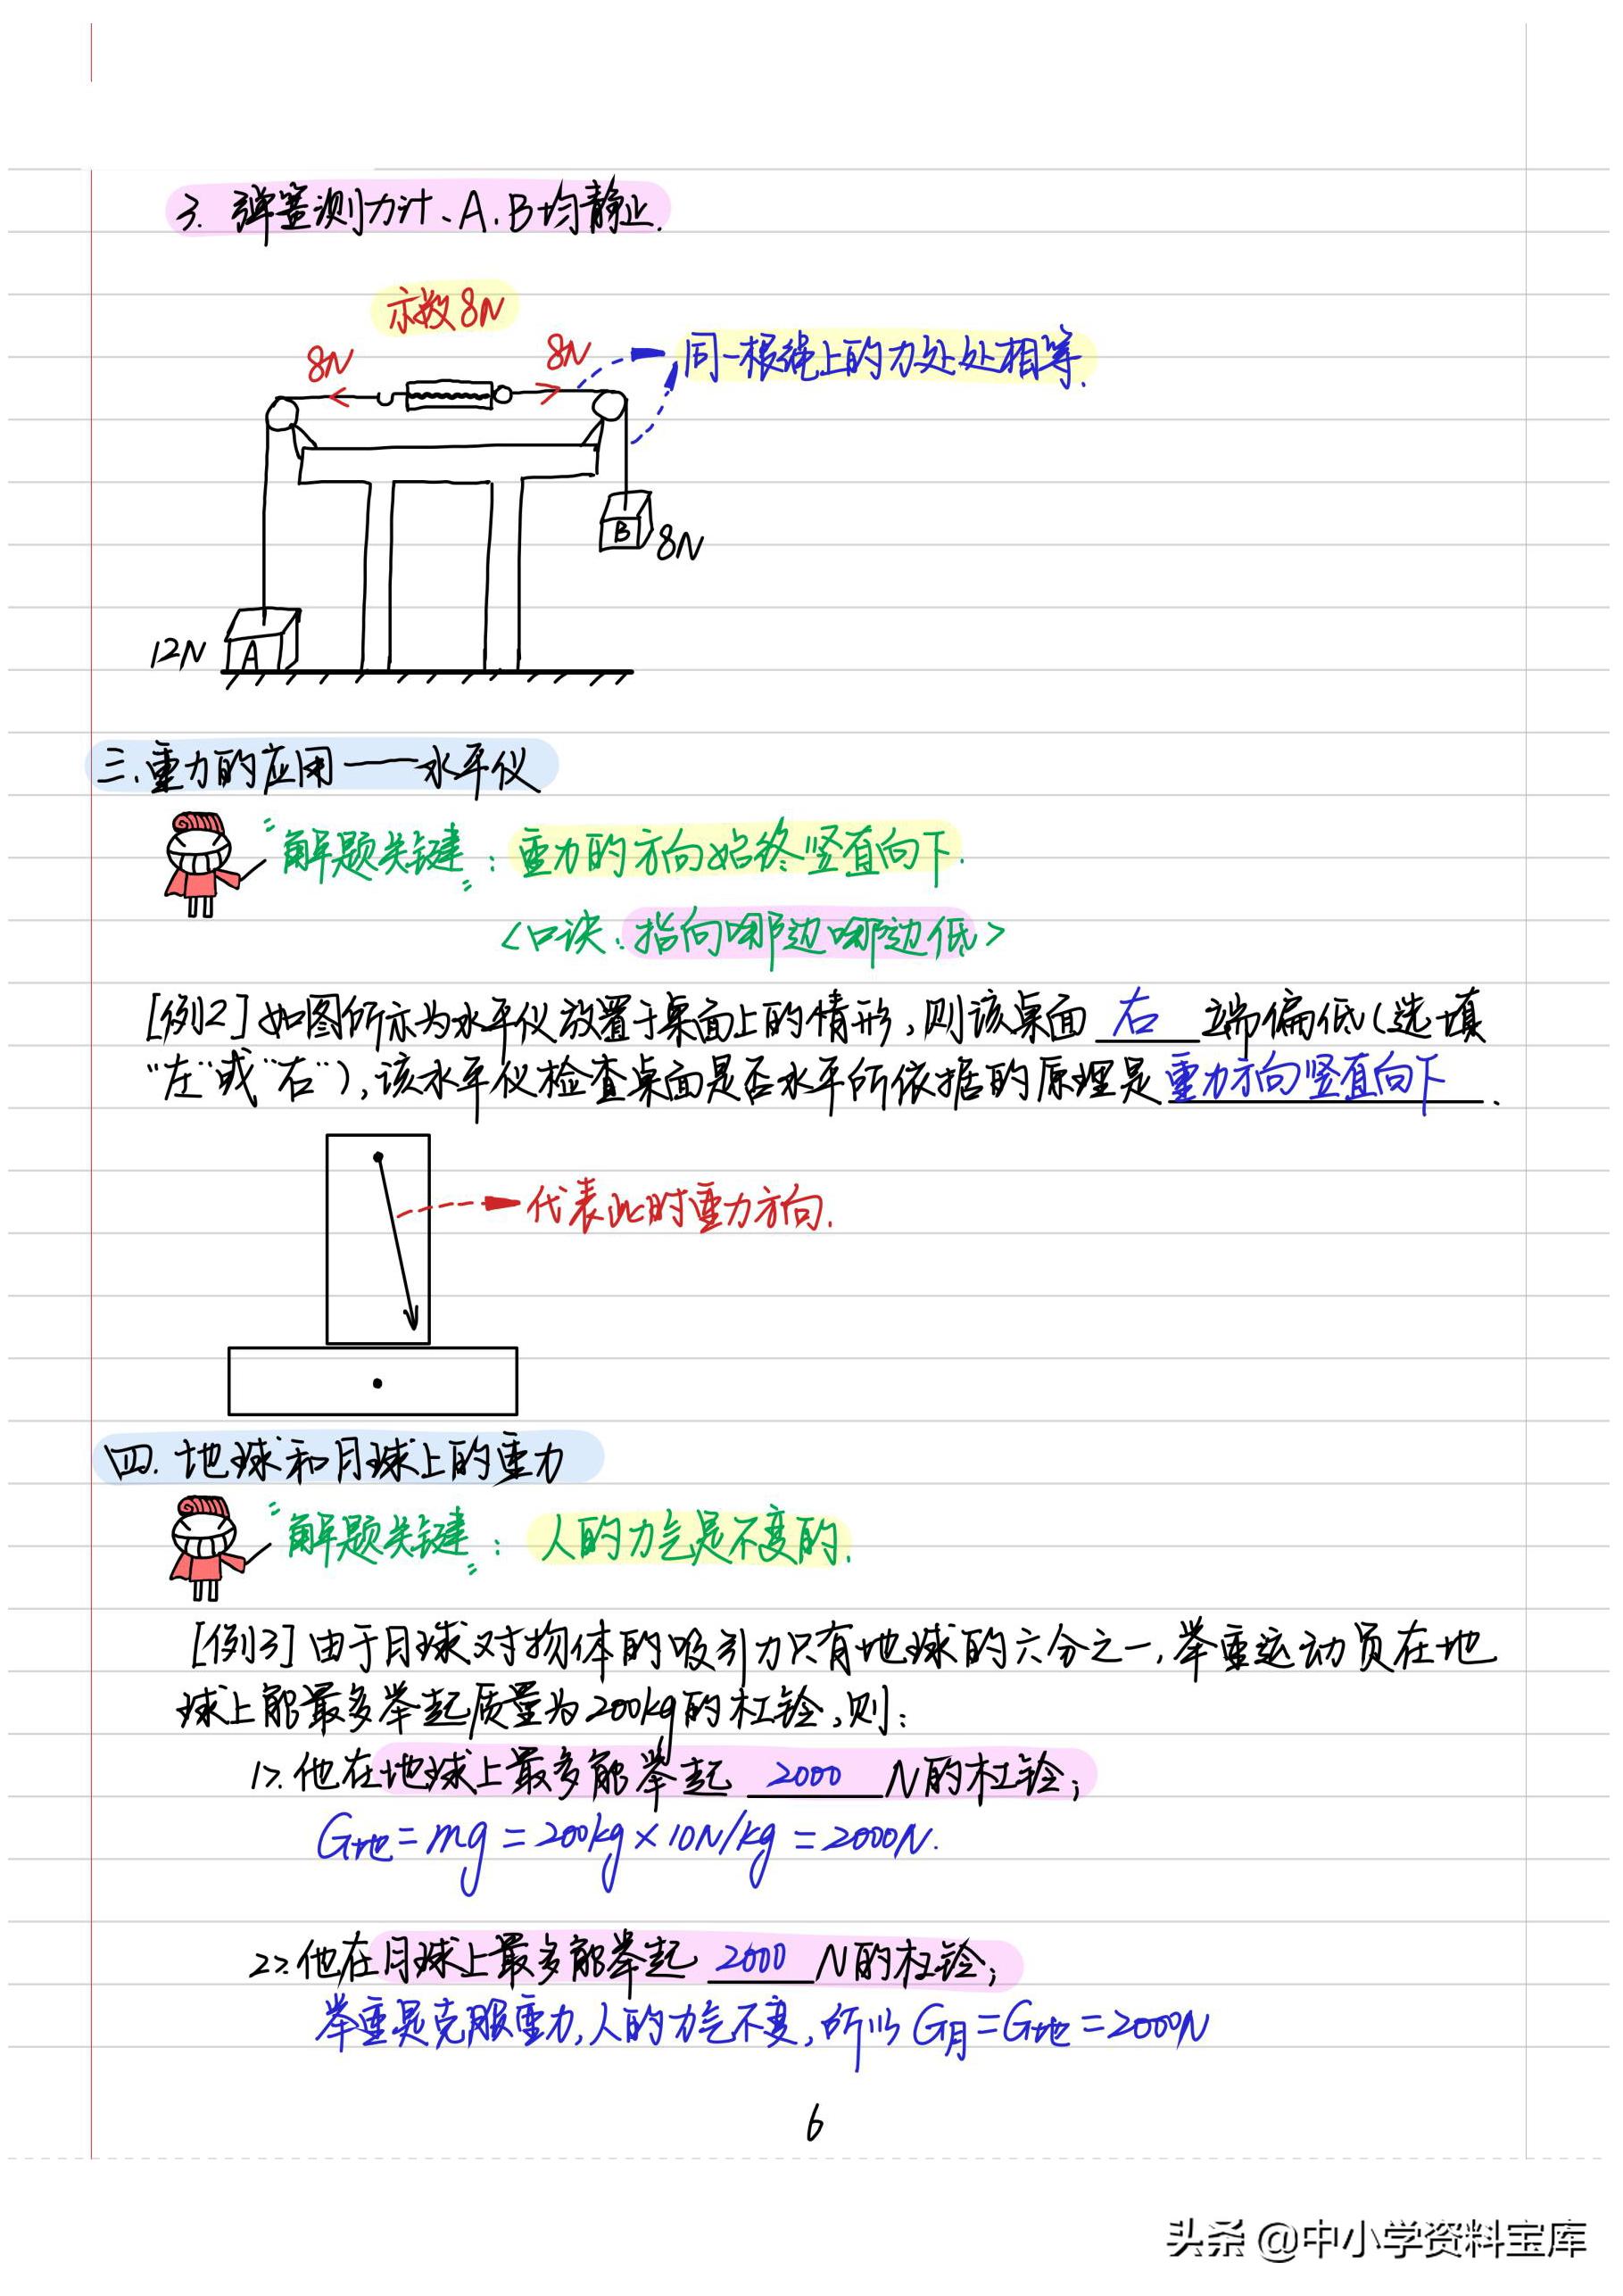 3. 弹簧测力计、A、B均静止.
示数8N
8N
8N
同一根绳上的力处处相等.
B
8N
12N
A
三.重力的应用——水平仪
"解题关键": 重力的方向始终竖直向下.
<口诀:指向哪边哪边低>
[例2]如图所示为水平仪放置于桌面上的情形,则该桌面 右 端偏低(选填
"左"或"右"),该水平仪检查桌面是否水平所依据的原理是重力方向竖直向下.
代表此时重力方向.
四.地球和月球上的重力
"解题关键": 人的力气是不变的.
[例3]由于月球对物体的吸引力只有地球的六分之一,举重运动员在地
球上能最多举起质量为200kg的杠铃,则:
1>.他在地球上最多能举起 2000 N的杠铃;
G地=mg=200kg×10N/kg=2000N.
2>.他在月球上最多能举起 2000 N的杠铃;
举重是克服重力,人的力气不变,所以G月=G地=2000N
6
头条 @中小学资料宝库